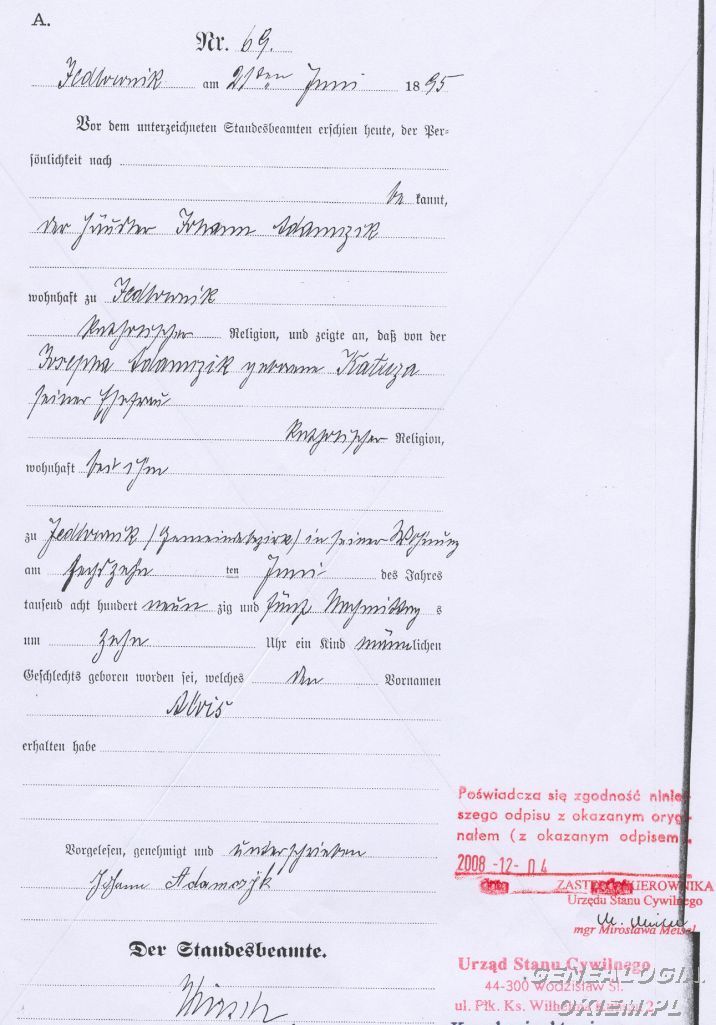 A.
Nr. 69.
Jedlownik am 21ten Juni 1895
Vor dem unterzeichneten Standesbeamten erschien heute, der Per-
sönlichkeit nach
be kannt,
der Häusler Johann Adamzik
wohnhaft zu Jedlownik
katholischer Religion, und zeigte an, daß von der
Josepha Adamzik geborene Katuza
seiner Ehefrau
katholischer Religion,
wohnhaft bei ihm
zu Jedlownik /Gemeindebezirk/ in seiner Wohnung
am sechszehn ten Juni des Jahres
tausend acht hundert neun zig und fünf Nachmittag s
um zehn Uhr ein Kind männlichen
Geschlechts geboren worden sei, welches den Vornamen
Alois
erhalten habe
Vorgelesen, genehmigt und unterschrieben
Johann Adamczyk
Der Standesbeamte.
Poświadcza się zgodność niniej-
szego odpisu z okazanym orygi-
nałem (z okazanym odpisem).
2008 -12- 04
data ZASTĘPCA KIEROWNIKA
Urzędu Stanu Cywilnego
M. Meisel
mgr Mirosława Meisel
Urząd Stanu Cywilnego
44-300 Wodzisław Śl.
ul. Płk. Ks. Wilhelma Kubsza 2
GENEALOGIA
OKIEM.PL